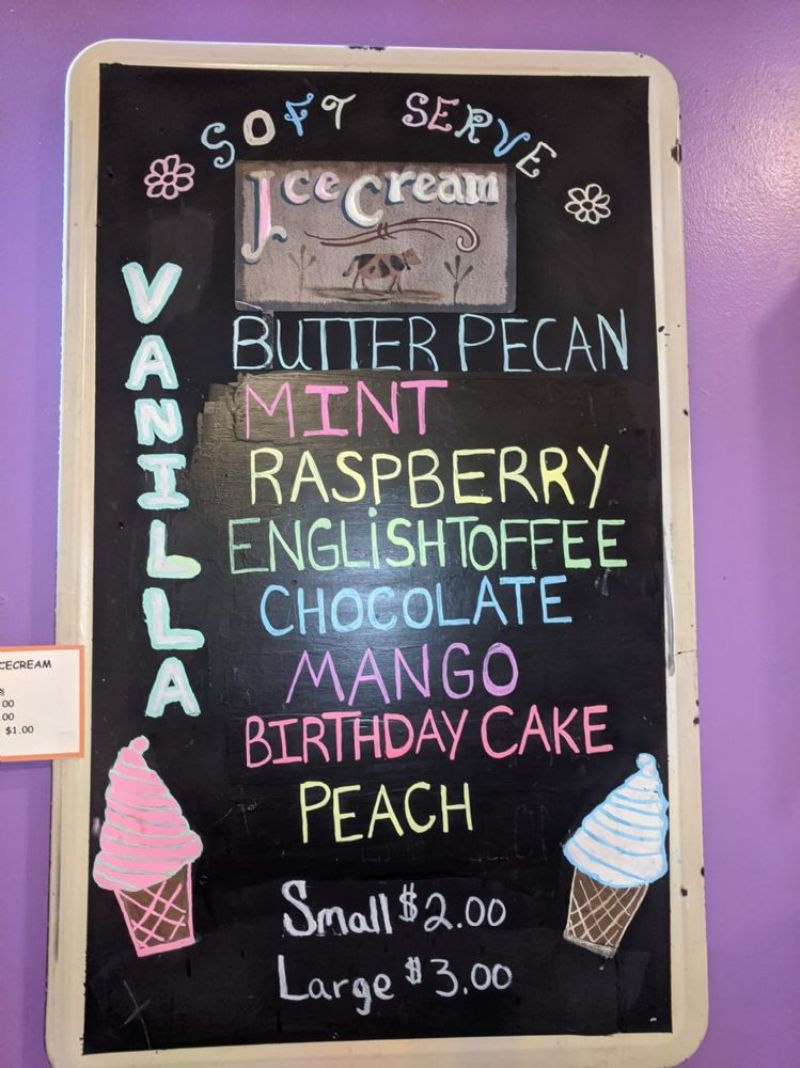 SOFT SERVE
Ice Cream
VANILLA
BUTTER PECAN
MINT
RASPBERRY
ENGLiSH TOFFEE
CHOCOLATE
MANGO
BIRTHDAY CAKE
PEACH
Small $2.00
Large $3.00
CECREAM
00
00
$1.00